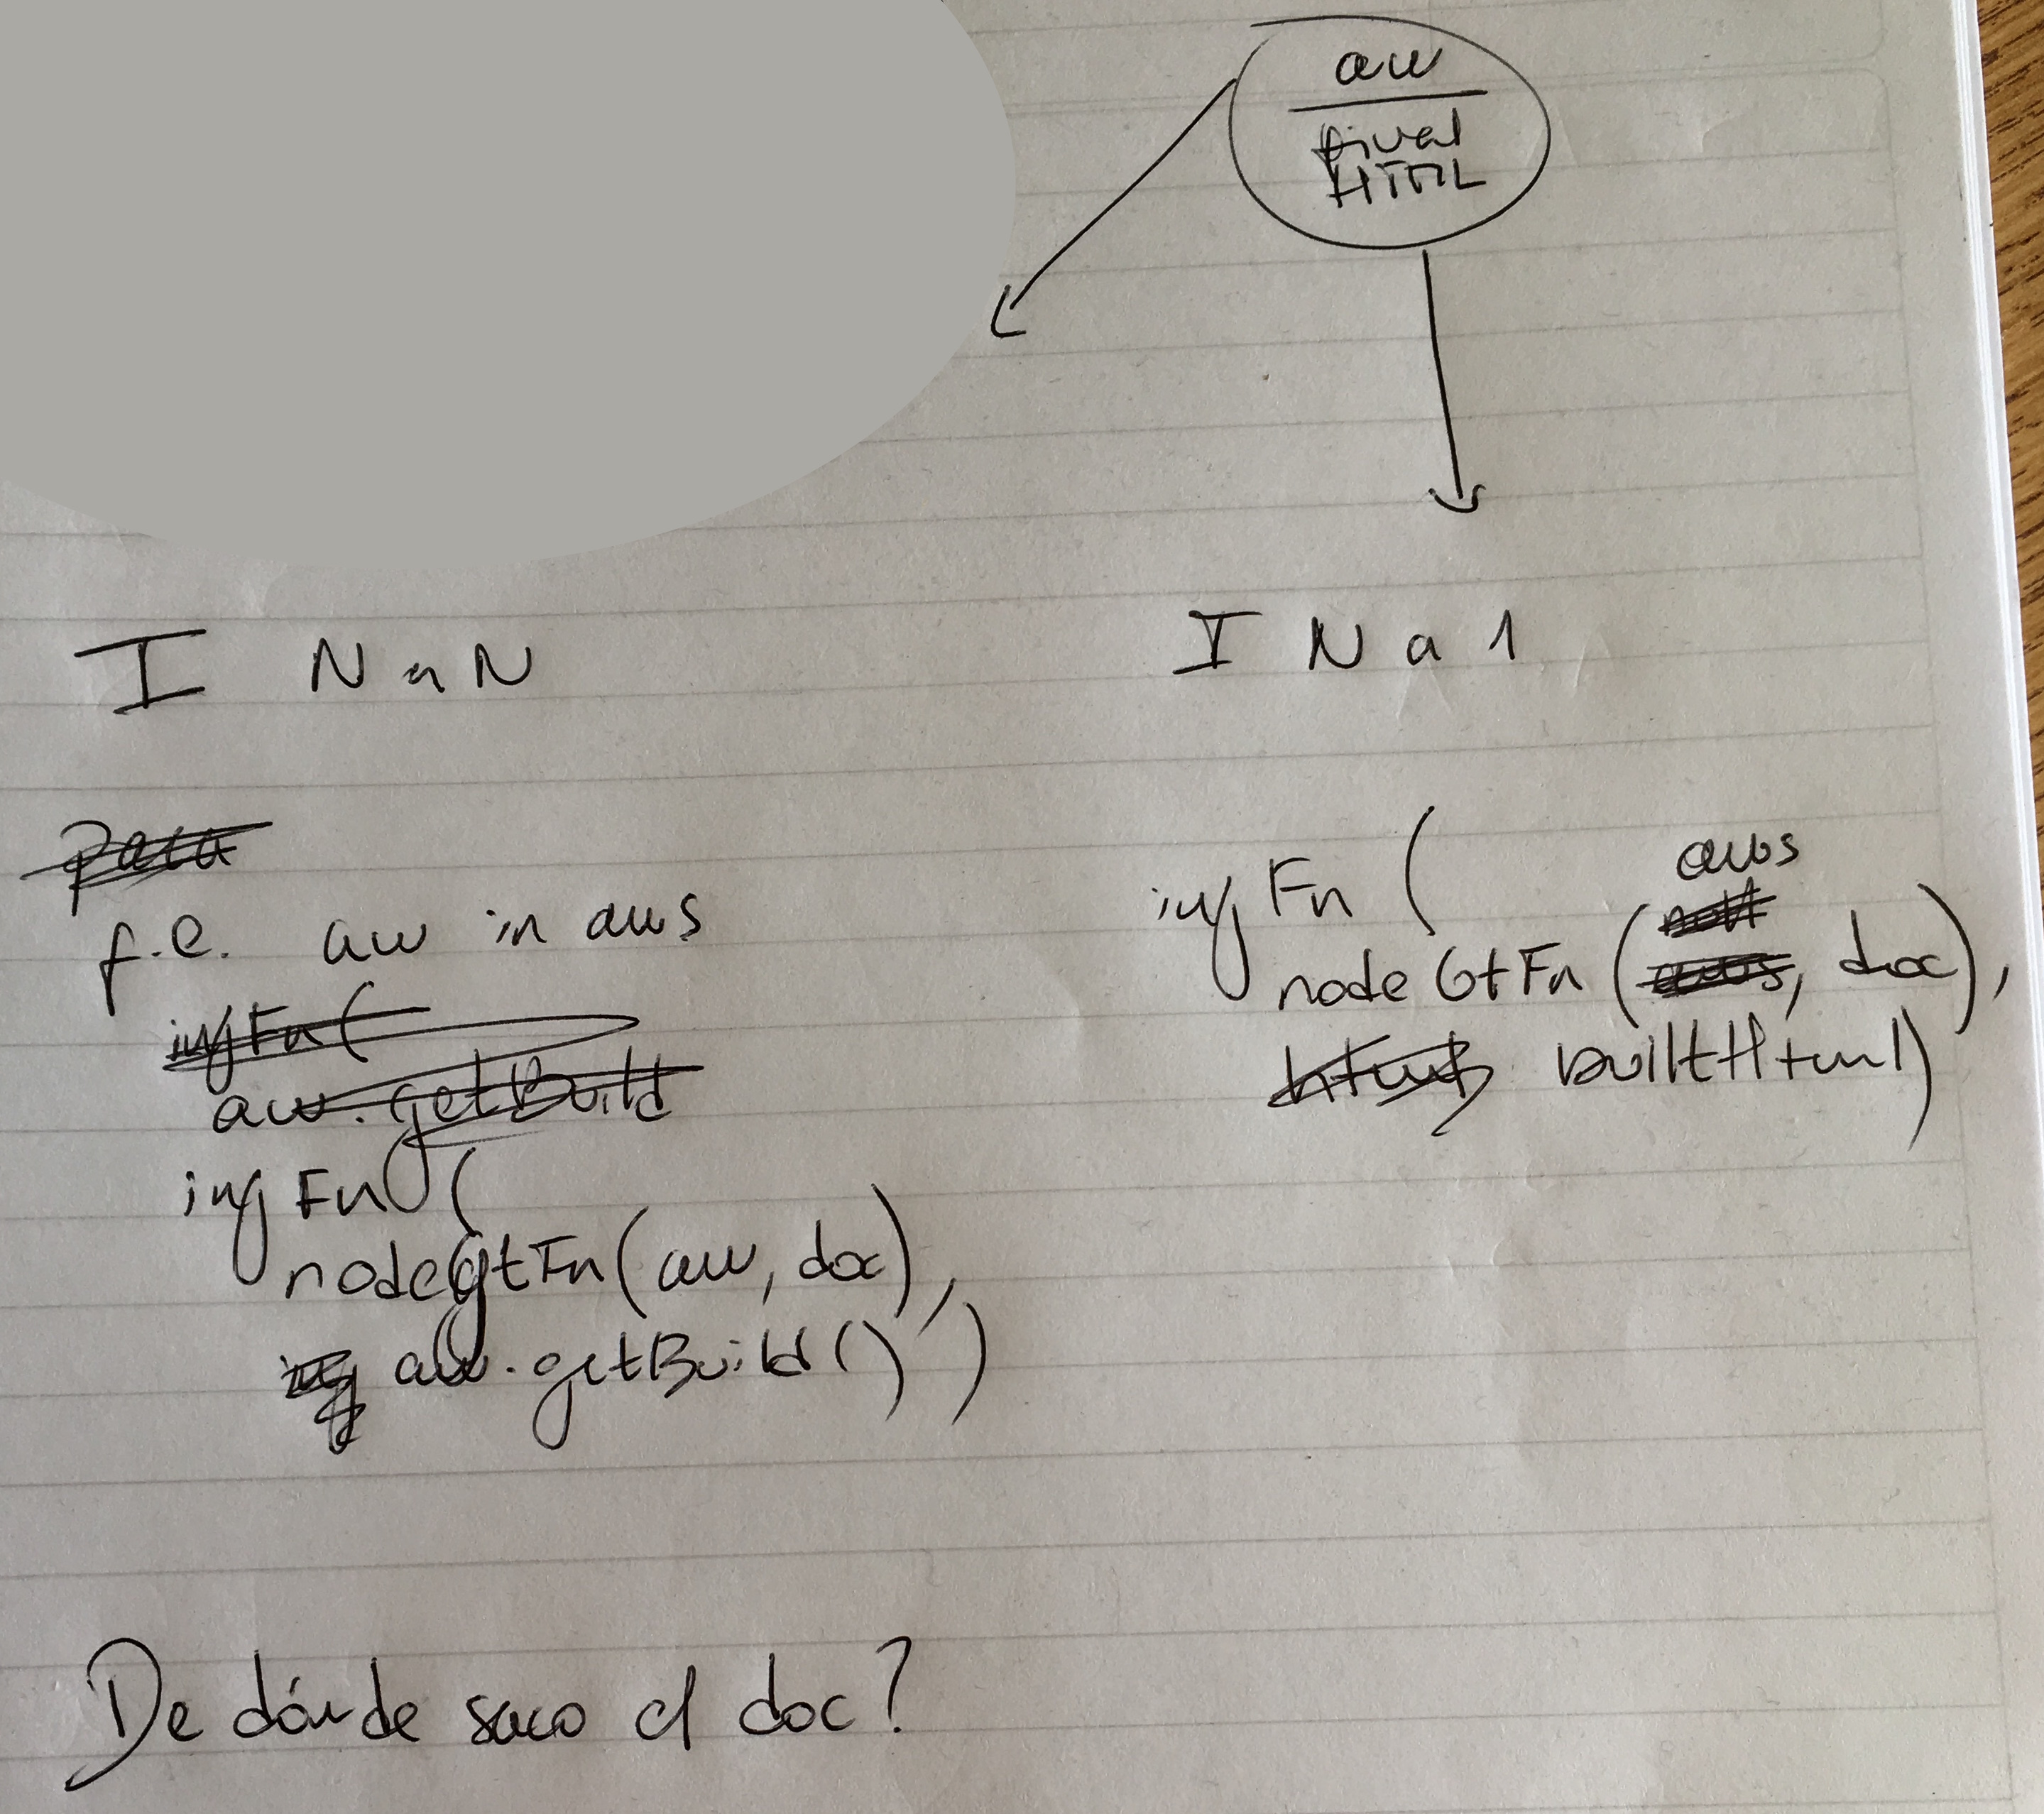 aw
final
HTML
I N a N
I N a 1
para
f.e. aw in aws
injFn(
aw.getBuild
injFn(
nodeGtFn(aw, doc),
inj aw.getBuild() )
injFn(
aws
nodeGtFn(aws, doc),
html builtHtml)
De dónde saco el doc?